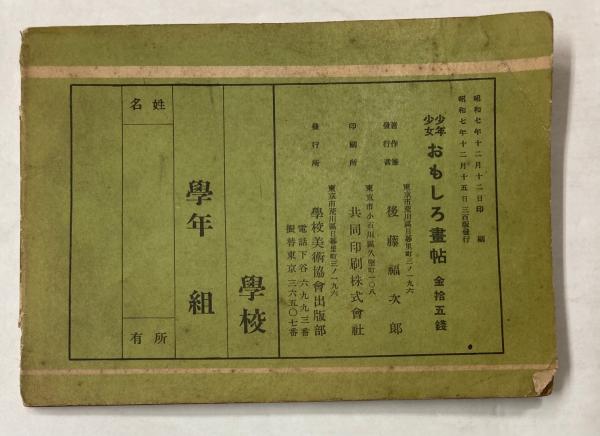 昭和七年十二月十二日印刷
昭和七年十二月十五日三百版發行
少年少女 おもしろ畫帖 金拾五錢
東京市荒川區日暮里町三ノ一九六
著作兼發行者 後藤福次郎
東京市小石川區久堅町一〇八
印刷所 共同印刷株式會社
東京市荒川區日暮里町三ノ一九六
發行所 學校美術協會出版部
電話下谷六九九三番
振替東京三六五〇七番
學校
學年 組
姓名
所有